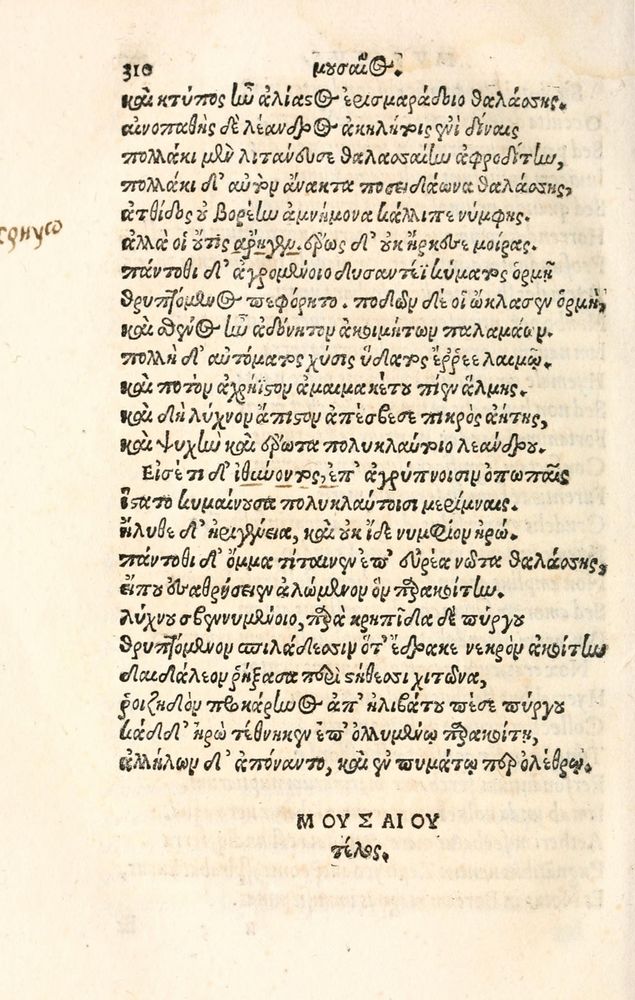 310 μουσαῖος.
καὶ κτύπος ἦν ἁλίαστος ἐρισμαράδοιο θαλάσσης.
αἰνοπαθὴς δὲ λέανδρος ἀκηλήτοις ἐνὶ δίναις
πολλάκι μὲν λιτάνευσε θαλασσαίην ἀφροδίτην,
πολλάκι δ' αὐτὸν ἄνακτα ποσειδάωνα θαλάσσης,
ἀτθίδος οὐ βορέην ἀμνήμονα κάλλιπε νύμφης.
ἀλλὰ οἱ οὔτις ἄρηγεν. ἔρως δ' οὐκ ἤρκεσε μοίρας.
πάντοθι δ' ἀγρομένοιο δυσαντέϊ κύματος ὁρμῇ
θρυπτόμενος πεφόρητο. ποδῶν δέ οἱ ὤκλασεν ὁρμὴ,
καὶ σθένος ἦν ἀδόνητον ἀκοιμήτων παλαμάων.
πολλὴ δ' αὐτόματος χύσις ὕδατος ἔῤῥεε λαιμῷ.
καὶ ποτὸν ἀχρήϊστον ἀμαιμακέτου πίεν ἅλμης.
καὶ δὴ λύχνον ἄπιστον ἀπέσβεσε πικρὸς ἀήτης,
καὶ ψυχὴν καὶ ἔρωτα πολυκλαύτοιο λεάνδρου.
Εἰσέτι δ' ἰθύνοντος, ἐπ' ἀγρύπνοισιν ὀπωπαῖς
ἵστατο κυμαίνουσα πολυκλαύτοισι μερίμναις.
ἤλυθε δ' ἠριγένεια, καὶ οὐκ ἴδε νυμφίον ἡρώ.
πάντοθι δ' ὄμμα τίταινεν ἐπ' εὐρέα νῶτα θαλάσσης,
εἴπου ἐσαθρήσειεν ἀλώμενον ὃν παρακοίτην.
λύχνου σβεννυμένοιο, παρὰ κρηπῖδα δὲ πύργου
θρυπτόμενον σπιλάδεσσιν ὅτ' ἔδρακε νεκρὸν ἀκοίτην
δαιδάλεον ῥήξασα περὶ στήθεσσι χιτῶνα,
ῥοιζηδὸν προκάρηνος ἀπ' ἠλιβάτου πέσε πύργου
κάδδ' ἡρὼ τέθνηκεν ἐπ' ὀλλυμένῳ παρακοίτῃ,
ἀλλήλων δ' ἀπόναντο, καὶ ἐν πυμάτῳ περ ὀλέθρῳ.
ΜΟΥΣΑΙΟΥ
τέλος.